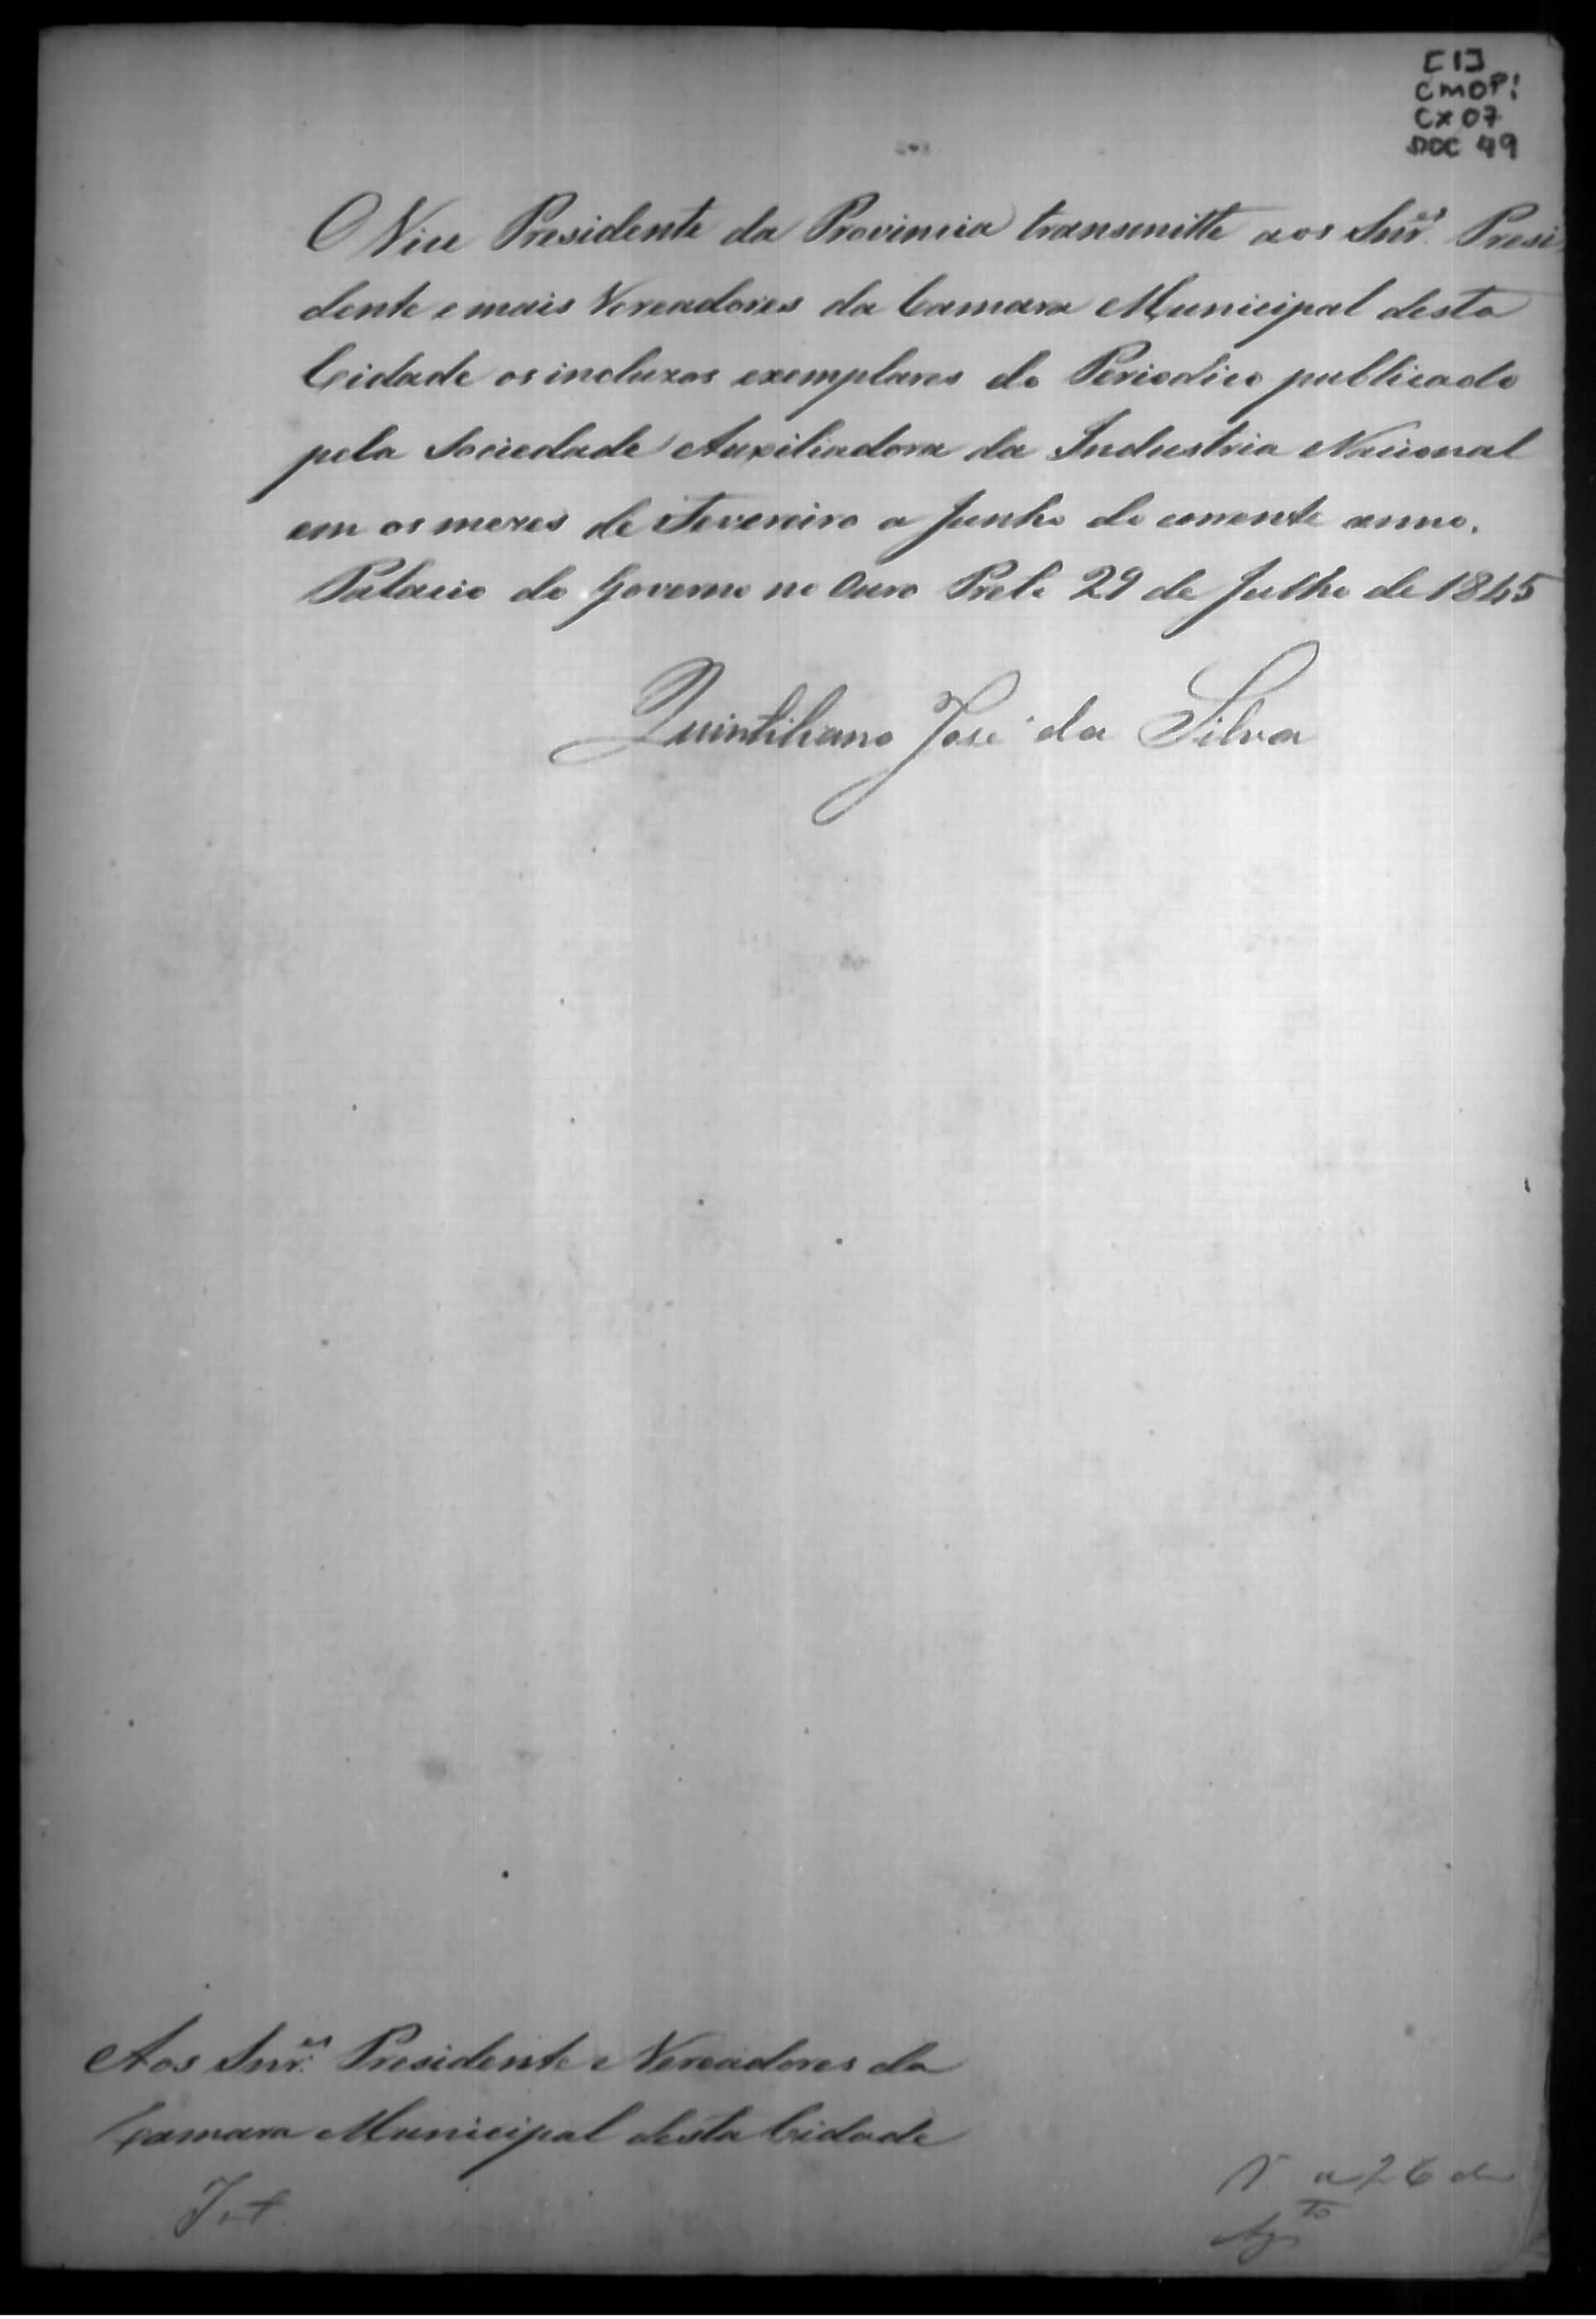 [1]
CMOP!
CX 07
DOC 49
O Vice Presidente da Provincia transmitte aos Snr.es Presi
dente e mais Vereadores da Camara Municipal desta
Cidade os incluzos exemplares do Periodico publicado
pela Sociedade Auxiliadora da Industria Nacional
em os mezes de Fevereiro a Junho do corrente anno.
Palacio do Governo no Ouro Preto 29 de Julho de 1845
Quintiliano José da Silva
Aos Snr.es Presidente e Vereadores da
Camara Municipal desta Cidade
a 26 de
Ag.to